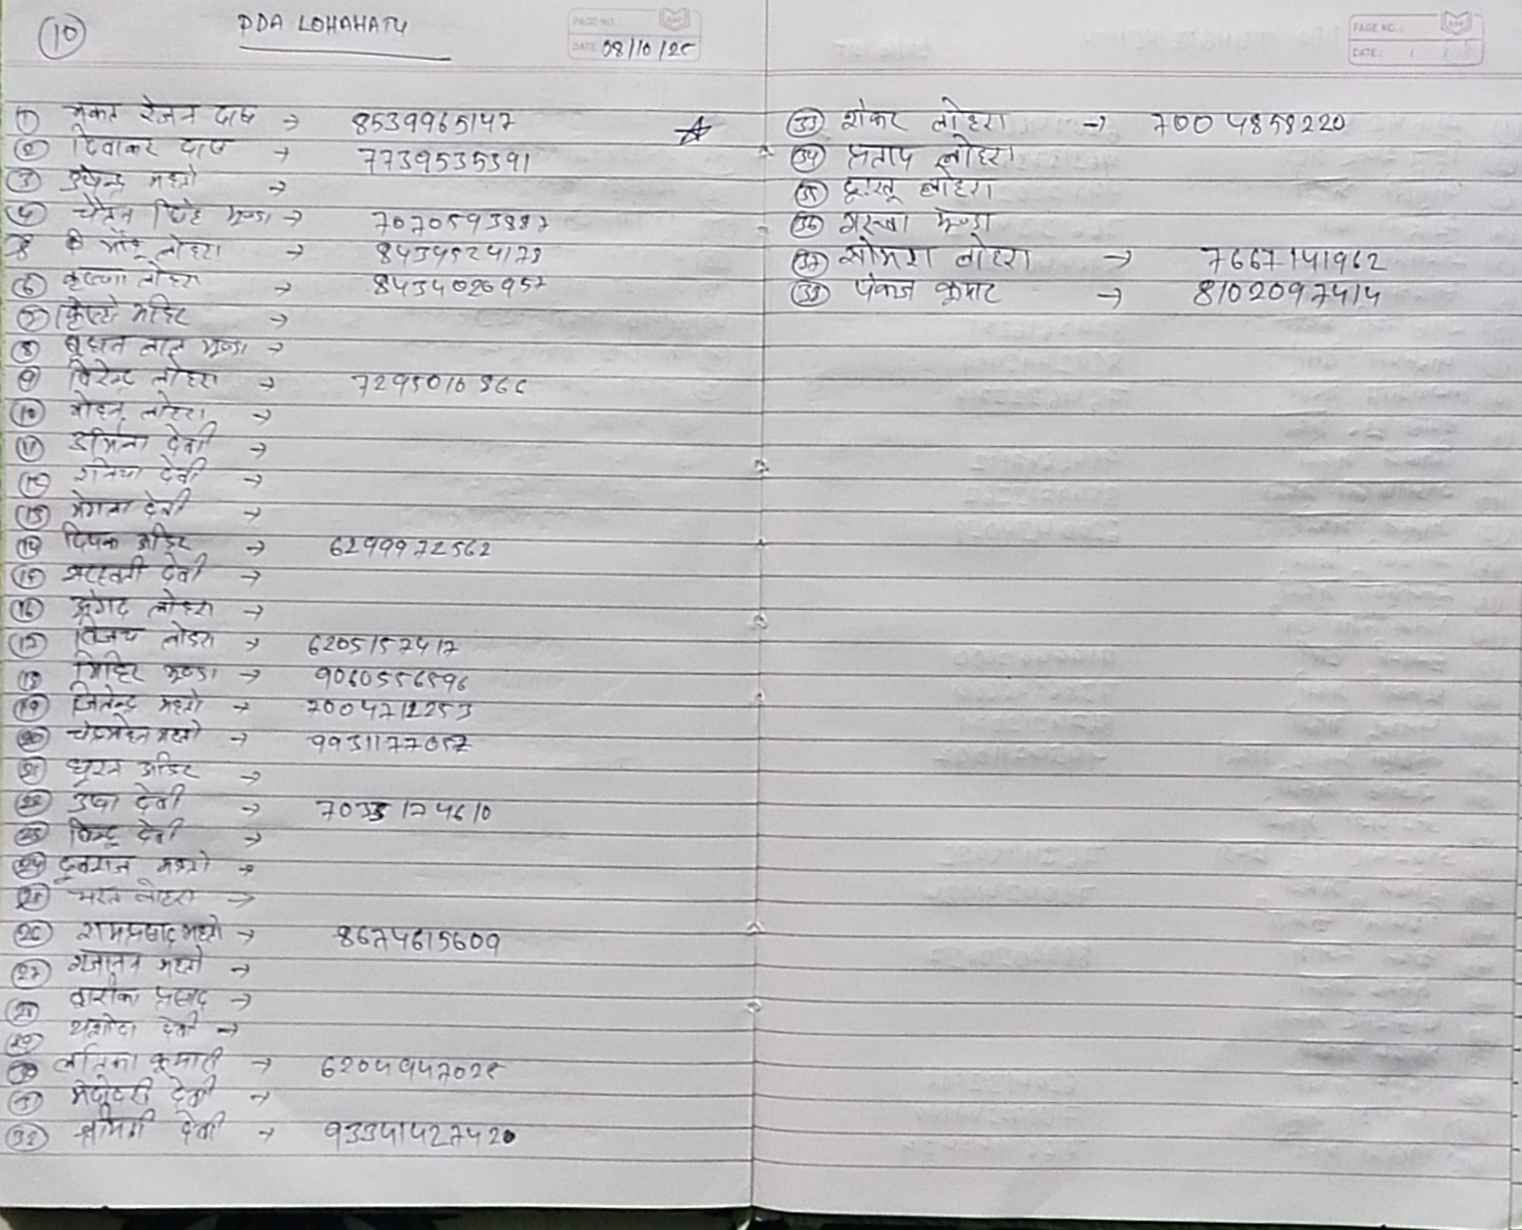 10
PDA LOHAHATU
PAGE NO.:
DATE: 08/10/25
1 मुकत रंजन दास → 8539965147
2 दिवाकर दास → 7739535391
3 उपेन्द्र महतो →
4 चैतन सिंह मुण्डा → 7070593887
5 लोहरा → 8434524173
6 कृष्णा लोहरा → 8434026957
7 अहिर →
8 बुधन लाल मुण्डा →
9 विरेन्द्र लोहरा → 7295010566
10 मोहन लोहरा →
11 उर्मिला देवी →
12 देवी →
13 मंगला देवी →
14 दिपक अहिर → 6299972562
15 सरस्वती देवी →
16 लोहरा →
17 विजय लोहरा → 6205157417
18 मिहिर मुण्डा → 9060556596
19 जितेन्द्र महतो → 7004712253
20 चंद्रमोहन महतो → 9931177057
21 अहिर →
22 उषा देवी → 7033174610
23 देवी →
24 महतो →
25 भरत लोहरा →
26 रामप्रसाद महतो → 8674615609
27 गजानन महतो →
28 प्रसाद →
29 यशोदा देवी →
30 लतिका कुमारी → 6204947025
31 मंदोदरी देवी →
32 देवी → 93341427420
PAGE NO.:
DATE: / /
33 शंकर लोहरा → 7004858220
34 प्रताप लोहरा
35 लोहरा
36 मुण्डा
37 सोमरा लोहरा → 7667141962
38 पंकज कुमार → 8102097414